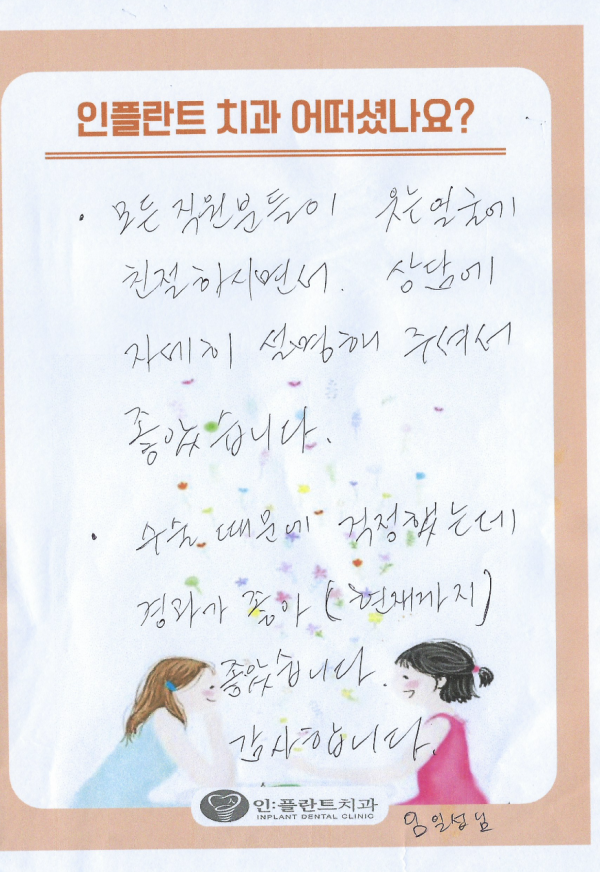 인플란트 치과 어떠셨나요?
· 모든 직원분들이 웃는얼굴에
친절하시면서. 상담에
자세히 설명해 주셔서
좋았습니다.
· 수술 때문에 걱정했는데
경과가 좋아 (현재까지)
좋았습니다.
감사합니다.
인:플란트치과
INPLANT DENTAL CLINIC
임일섭님